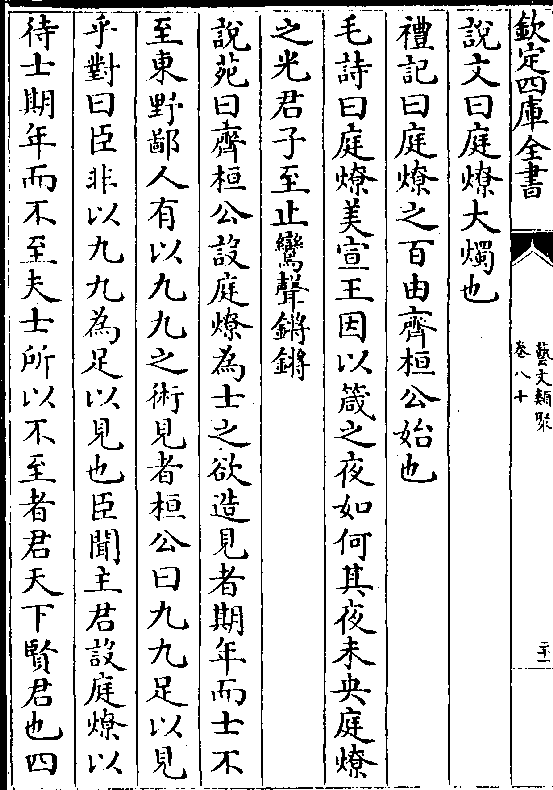 欽定四庫全書
藝文類聚
卷八十
說文曰庭燎大燭也
禮記曰庭燎之百由齊桓公始也
毛詩曰庭燎美宣王因以箴之夜如何其夜未央庭燎
之光君子至止鸞聲鏘鏘
說苑曰齊桓公設庭燎為士之欲造見者期年而士不
至東野鄙人有以九九之術見者桓公曰九九足以見
乎對曰臣非以九九為足以見也臣聞主君設庭燎以
待士期年而不至夫士所以不至者君天下賢君也四